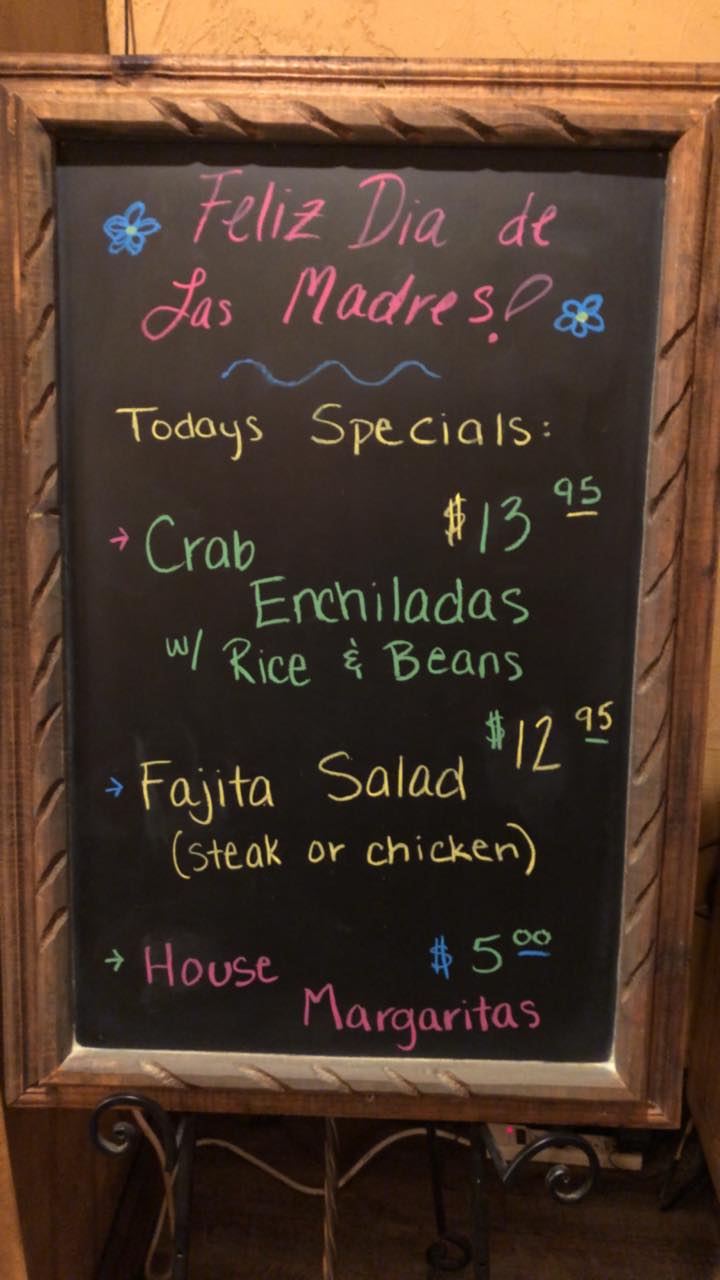 Feliz Dia de
Las Madres!
Todays Specials:
→ Crab $13 95
Enchiladas
w/ Rice & Beans
$12 95
→ Fajita Salad
(steak or chicken)
→ House $5 00
Margaritas